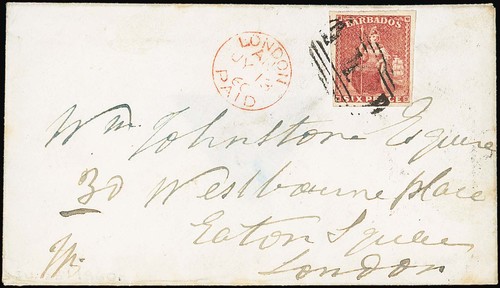 LONDON
A
JY 13
60
PAID
BARBADOS
SIX PENCE
1
Wm. Johnstone Esquire
30 Westbourne place
Eaton Square
London